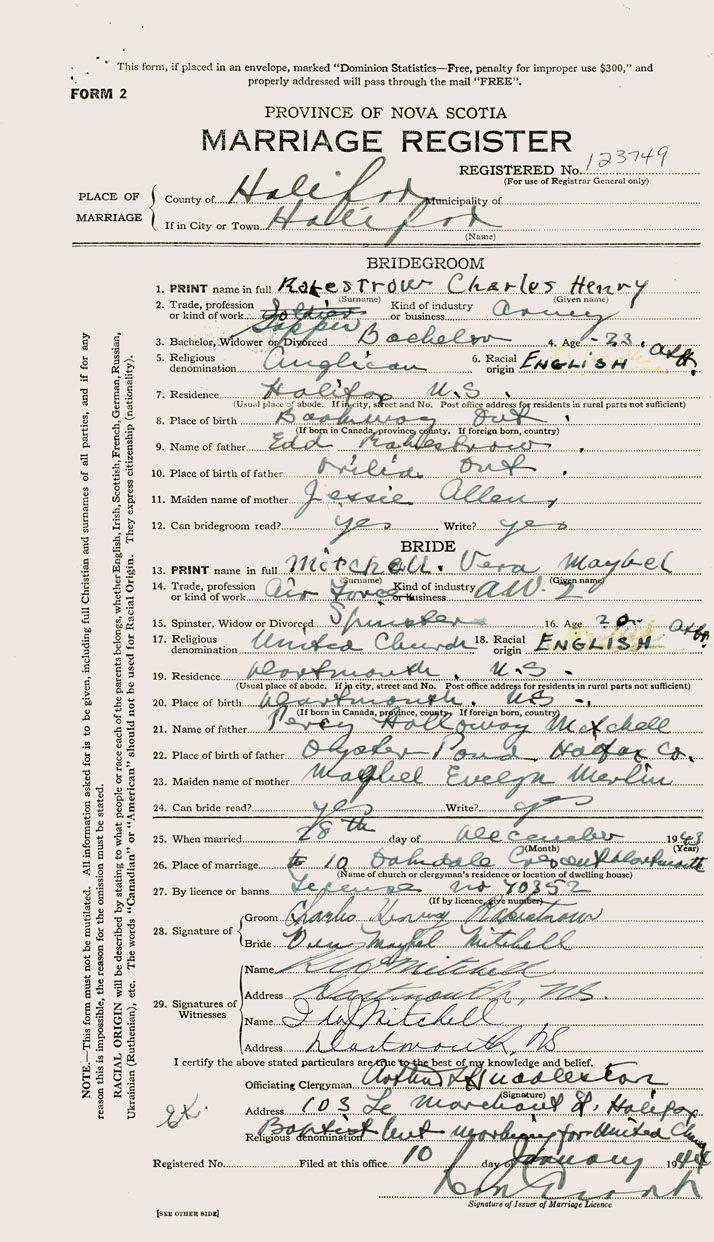 This form, if placed in an envelope, marked "Dominion Statistics—Free, penalty for improper use $300," and
properly addressed will pass through the mail "FREE".
FORM 2
PROVINCE OF NOVA SCOTIA
MARRIAGE REGISTER
REGISTERED No. 123749
(For use of Registrar General only)
PLACE OF MARRIAGE
County of Halifax Municipality of
If in City or Town Halifax
(Name)
BRIDEGROOM
1. PRINT name in full Rakestrow Charles Henry
(Surname) (Given name)
2. Trade, profession or kind of work Soldier Sapper Kind of industry or business Army
3. Bachelor, Widower or Divorced Bachelor 4. Age 23
5. Religious denomination Anglican 6. Racial origin ENGLISH
7. Residence Halifax N.S.
(Usual place of abode. If in city, street and No. Post office address for residents in rural parts not sufficient)
8. Place of birth Ont
(If born in Canada, province, county. If foreign born, country)
9. Name of father Edd Rakestrow
10. Place of birth of father Orilia Ont
11. Maiden name of mother Jessie Allen
12. Can bridegroom read? yes Write? yes
BRIDE
13. PRINT name in full Mitchell. Vera Maybel
(Surname) (Given name)
14. Trade, profession or kind of work Air Force Kind of industry or business A.W. 2
15. Spinster, Widow or Divorced Spinster 16. Age 20
17. Religious denomination United Church 18. Racial origin ENGLISH
19. Residence Dartmouth, N.S.
(Usual place of abode. If in city, street and No. Post office address for residents in rural parts not sufficient)
20. Place of birth Dartmouth. NS
(If born in Canada, province, county. If foreign born, country)
21. Name of father Percy Holloway Mitchell
22. Place of birth of father Oyster Pond Halifax Co.
23. Maiden name of mother Maybel Evelyn Merlin
24. Can bride read? yes Write? yes
25. When married 28th day of December 1943
(Month) (Year)
26. Place of marriage 10 Oakdale Crescent Dartmouth
(Name of church or clergyman's residence or location of dwelling house)
27. By licence or banns License no 40352
(If by licence, give number)
28. Signature of
Groom Charles Henry Rakestrow
Bride Vera Maybel Mitchell
29. Signatures of Witnesses
Name Mitchell
Address Dartmouth, N.S.
Name Ida Mitchell
Address Dartmouth, NS
I certify the above stated particulars are true to the best of my knowledge and belief.
Officiating Clergyman Arthur Huddleston
(Signature)
Address 103 Le Marchant St. Halifax
Religious denomination Baptist but working for United Church
Registered No. Filed at this office 10 day of January 1944
Signature of Issuer of Marriage Licence
[SEE OTHER SIDE]
NOTE.—This form must not be mutilated. All information asked for is to be given, including full Christian and surnames of all parties, and if for any
reason this is impossible, the reason for the omission must be stated.
RACIAL ORIGIN will be described by stating to what people or race each of the parents belongs, whether English, Irish, Scottish, French, German, Russian,
Ukrainian (Ruthenian), etc. The words "Canadian" or "American" should not be used for Racial Origin. They express citizenship (nationality).